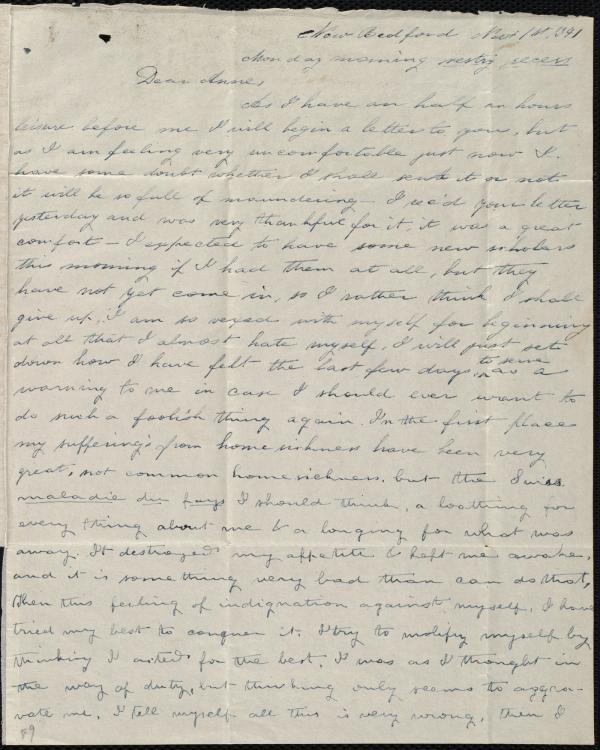 New Bedford Nov 1st, 1841
Monday morning vestry recess
Dear Anne,
As I have an half an hours
leisure before me I will begin a letter to you, but
as I am feeling very uncomfortable just now I
have some doubt whether I shall send it or not
it will be so full of maundering. I rec'd your letter
yesterday and was very thankful for it, it was a great
comfort – I expected to have some new scholars
this morning if I had them at all, but they
have not yet come in, so I rather think I shall
give up. I am so vexed with myself for beginning
at all that I almost hate myself. I will just set
down how I have felt the last few days, to serve as a
warning to me in case I should ever want to
do such a foolish thing again. In the first place
my sufferings from homesickness have been very
great, not common homesickness, but the Swiss
maladie du pays I should think, a loathing for
every thing about me & a longing for what was
away. It destroyed my appetite & kept me awake,
and it is something very bad than can do that,
then this feeling of indignation against myself, I have
tried my best to conquer it. I try to molify myself by
thinking I acted for the best, I was as I thought in
the way of duty, but thinking only seems to aggra-
vate me. I tell myself all this is very wrong, then I